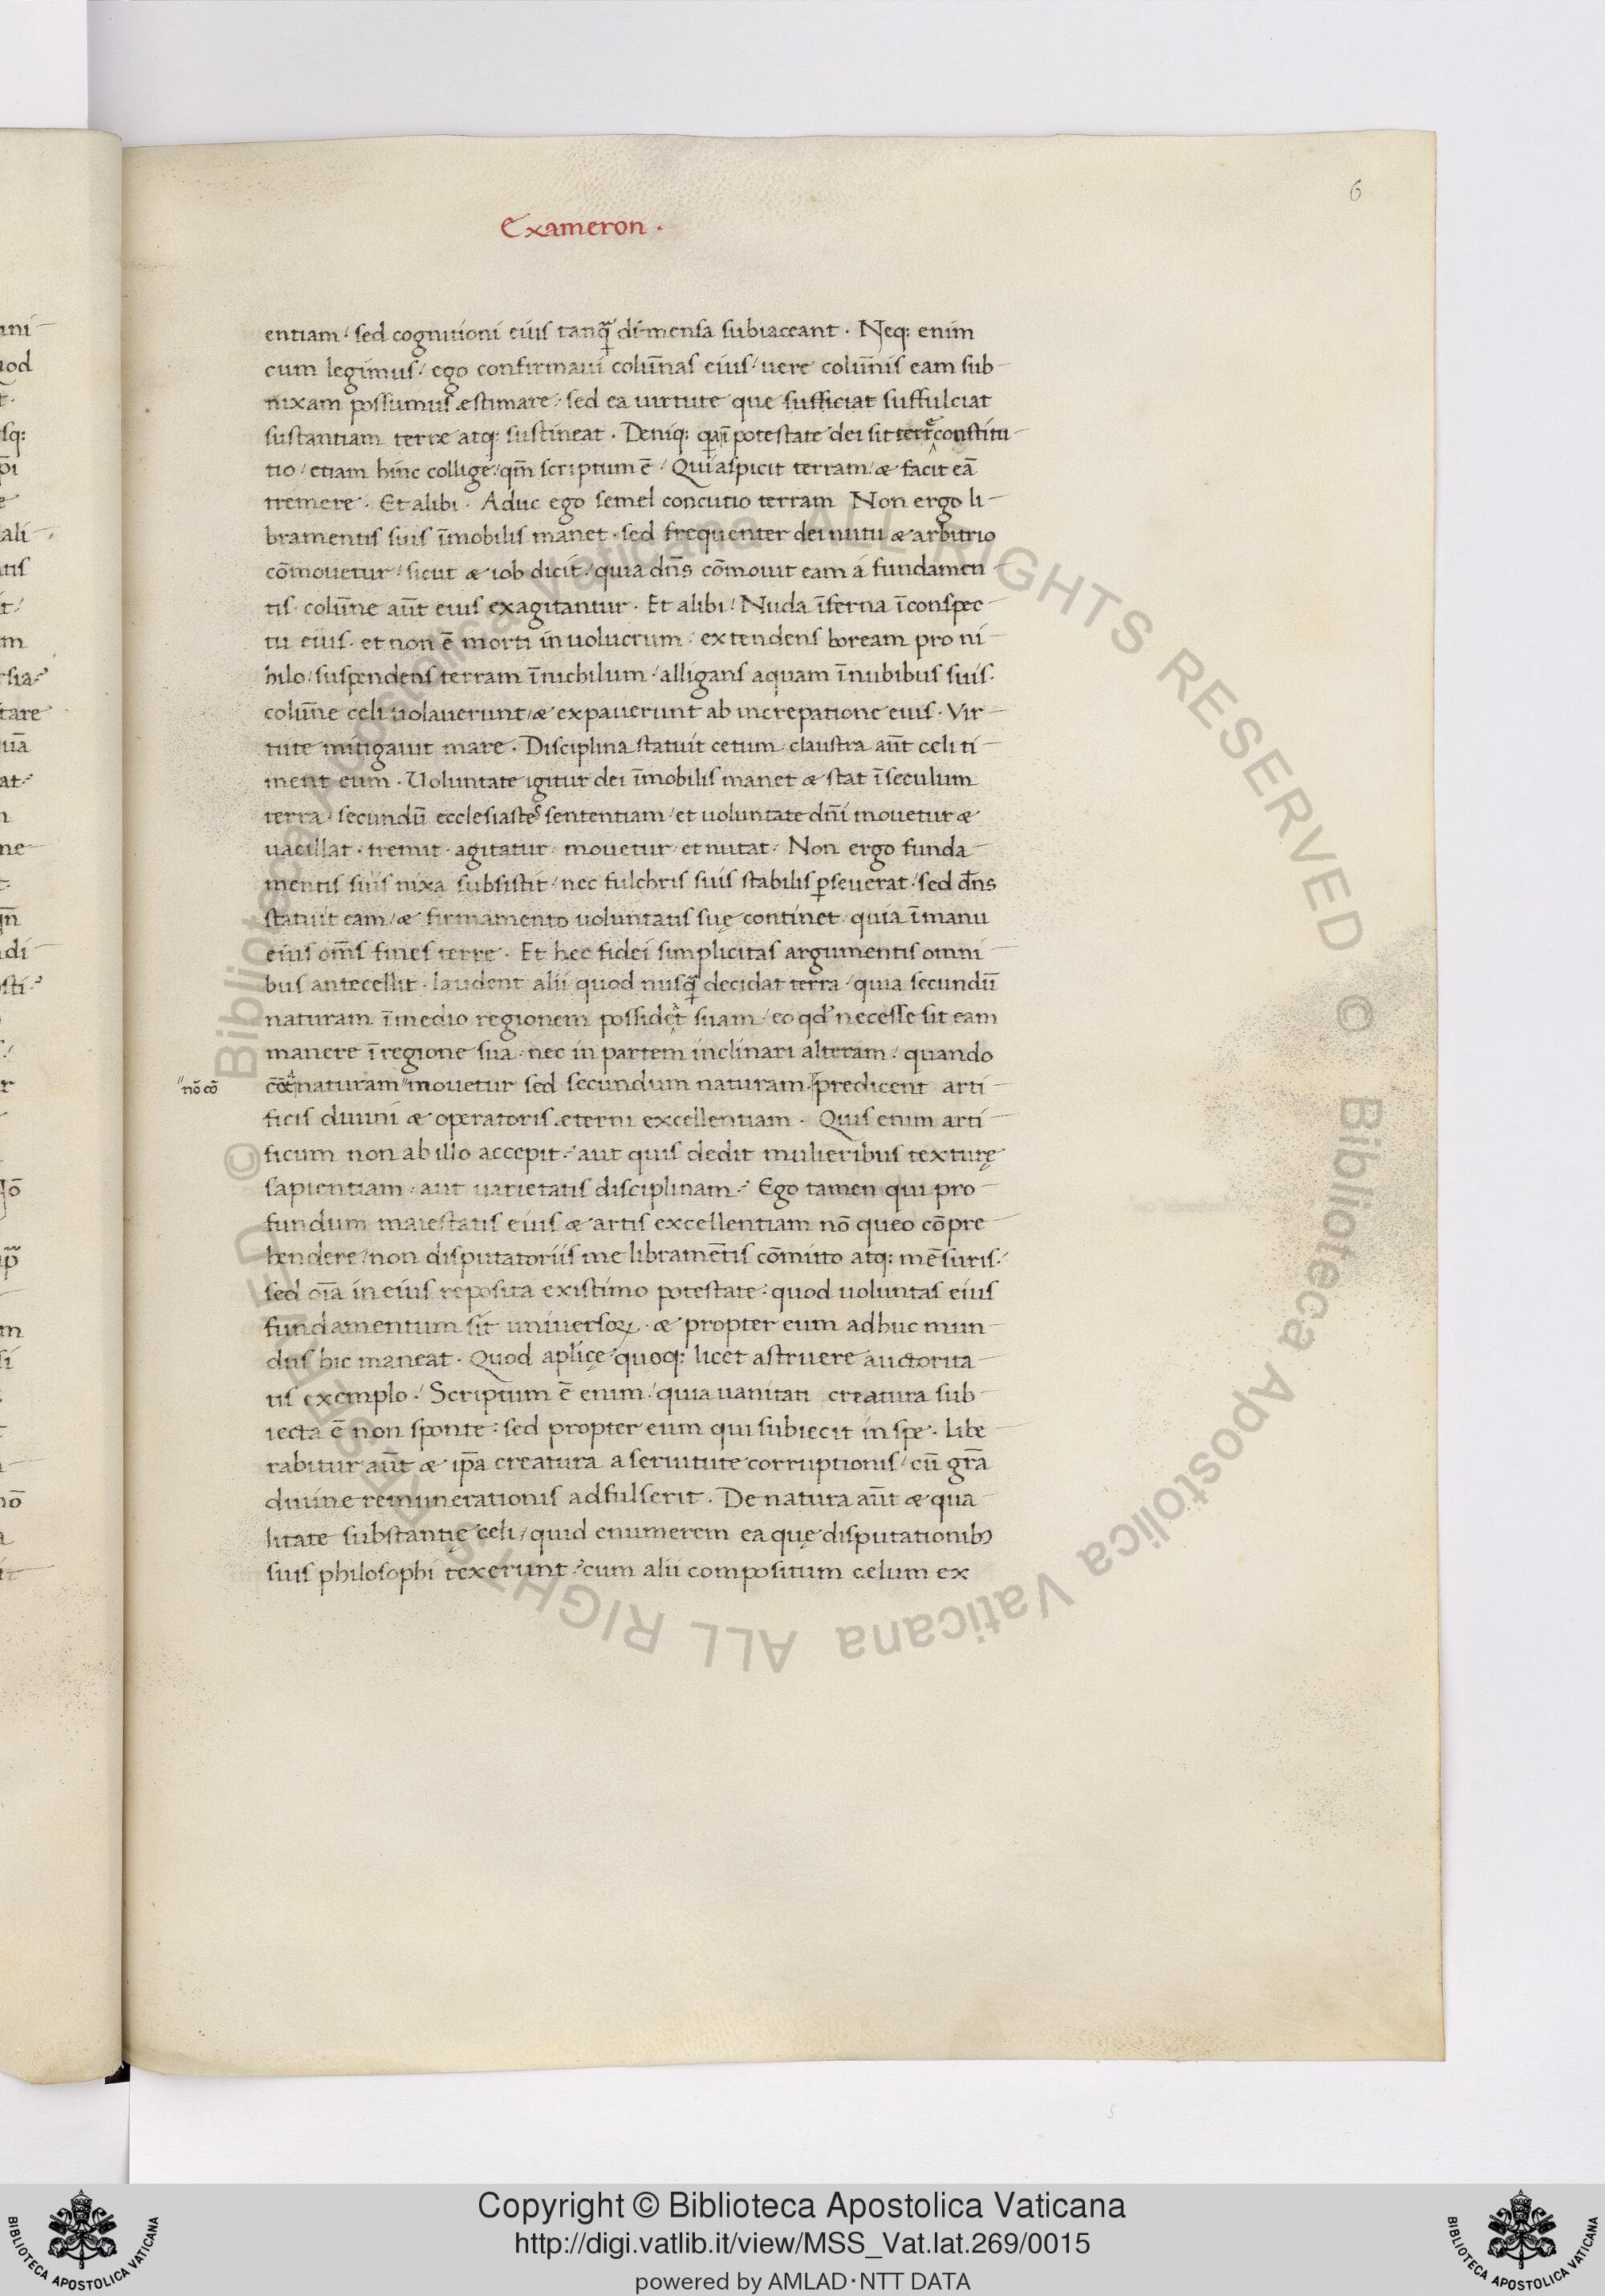 6
Exameron ·
entiam / sed cognitioni eius tanq̃ᵃ di-mensa subiaceant · Neq: enim
cum legimus / ego confirmaui colūnas eius / uere colūnis eam sub-
nixam possumus æstimare · sed ea uirtute que sufficiat suffulciat
sustantiam terre atq: sustineat · Deniq: qaī potestate dei sit terrę constitu-
tio / etiam hinc collige / qm̄ scriptum ē / Qui aspicit terram / æ facit eā
tremere · Et alibi · Aduc ego semel concutio terram Non ergo li-
bramentis suis īmobilis manet · sed frequenter dei nutu æ arbitrio
cōmouetur / sicut æ iob dicit / quia dn̄s cōmouit eam á fundamen-
tis · colūne aūt eius exagitantur · Et alibi / Nuda īferna ī conspec-
tu eius · et non ē morti inuolucrum / extendens boream pro ni-
hilo / suspendens terram ī nichilum / alligans aquam ī nubibus suis ·
colūne celi uolauerunt / æ expauerunt ab increpatione eius · Vir-
tute mitigauit mare · Disciplina statuit cetum / claustra aūt celi ti-
ment eum · Uoluntate igitur dei īmobilis manet æ stat ī seculum
terra · secundū ecclesiastes sententiam / et uoluntate dn̄i mouetur æ
uacillat · tremit · agitatur · mouetur · et nutat · Non ergo funda-
mentis suis nixa subsistit / nec fulchris suis stabilis ꝑseuerat / sed dn̄s
statuit eam / æ firmamento uoluntatis suę continet · quia ī manu
eius om̄s fines terre · Et hec fidei simplicitas argumentis omni-
bus antecellit · laudent alii quod nusq̃ᵃ decidat terra / quia secundū
naturam ī medio regionem possideat suam / eo qd' necesse sit eam
manere ī regione sua · nec in partem inclinari alteram / quando
cōtᵃ naturam " mouetur sed secundum naturam / predicent arti-
" nō cō
ficis diuini æ operatoris æterni excellentiam · Quis enim arti-
ficum non ab illo accepit · aut quis dedit mulieribus texturę
sapientiam · aut uarietatis disciplinam · Ego tamen qui pro-
fundum maiestatis eius æ artis excellentiam nō queo cōpre-
hendere / non disputatoriis me libramētis cōmitto atq: mēsuris ·
sed oīa in eius reposita existimo potestate · quod uoluntas eius
fundamentum sit uniuersoꝝ · æ propter eum adhuc mun-
dus hic maneat · Quod aplicę quoq: licet astruere auctorita-
tis exemplo · Scriptum ē enim / quia uanitati creatura sub-
iecta ē non sponte · sed propter eum qui subiecit in spe · libe-
rabitur aūt æ ip̄a creatura a seruitute corruptionis / cū gr̄a
diuine remunerationis adfulserit · De natura aūt æ qua-
litate substantię celi / quid enumerem ea quę disputationibꝰ
suis philosophi texerunt / cum alii compositum celum ex
© Biblioteca Apostolica Vaticana ALL RIGHTS RESERVED © Biblioteca Apostolica Vaticana ALL RIGHTS RESERVED
Copyright © Biblioteca Apostolica Vaticana
http://digi.vatlib.it/view/MSS_Vat.lat.269/0015
powered by AMLAD·NTT DATA
BIBLIOTECA APOSTOLICA VATICANA
BIBLIOTECA APOSTOLICA VATICANA